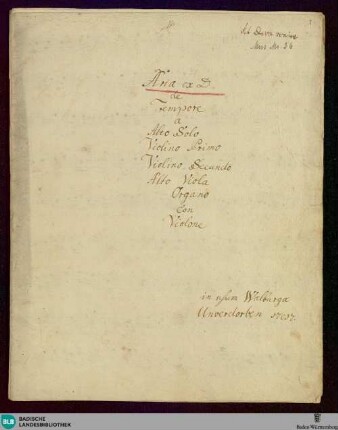 Aria ex D.
de
Tempore
a
Alto Solo
Violino Primo
Violino Secundo
Alto Viola
Organo
Con
Violone
in usum Walburga
Unverdorben
BLB BADISCHE
LANDESBIBLIOTHEK
Baden-Württemberg